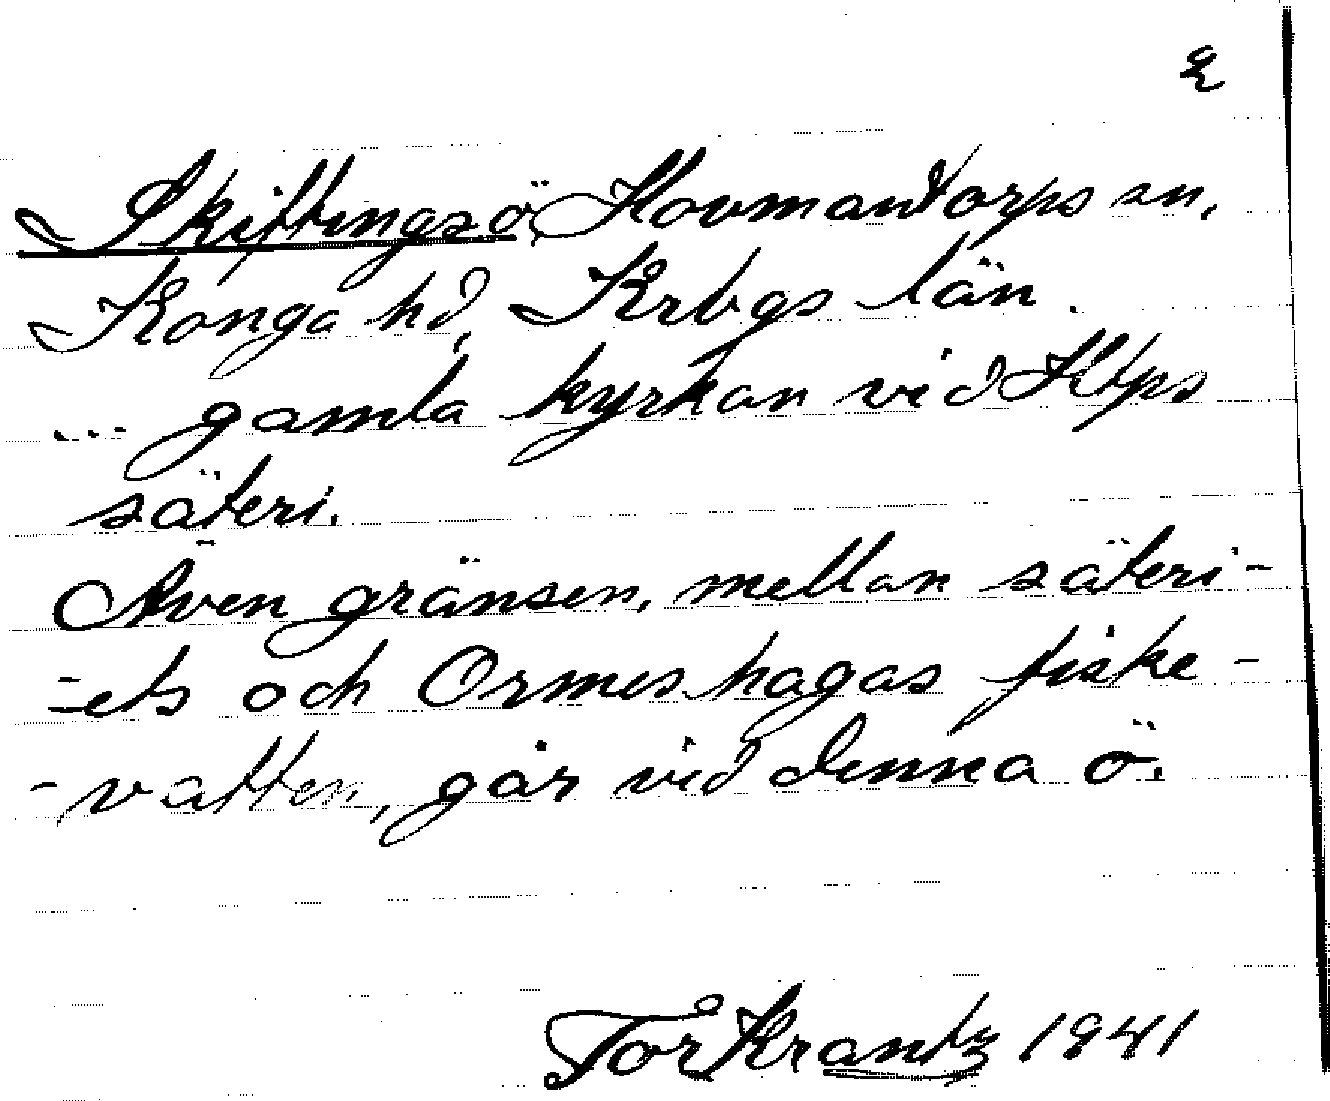 2
Skiftingsö, Hovmantorps sn,
Konga hd, Krbgs län.
... gamla kyrkan vid Htps
säteri.
Även gränsen, mellan säteri-
-ets och Ormeshagas fiske-
-vatten, går vid denna ö.
Tor Krantz 1941